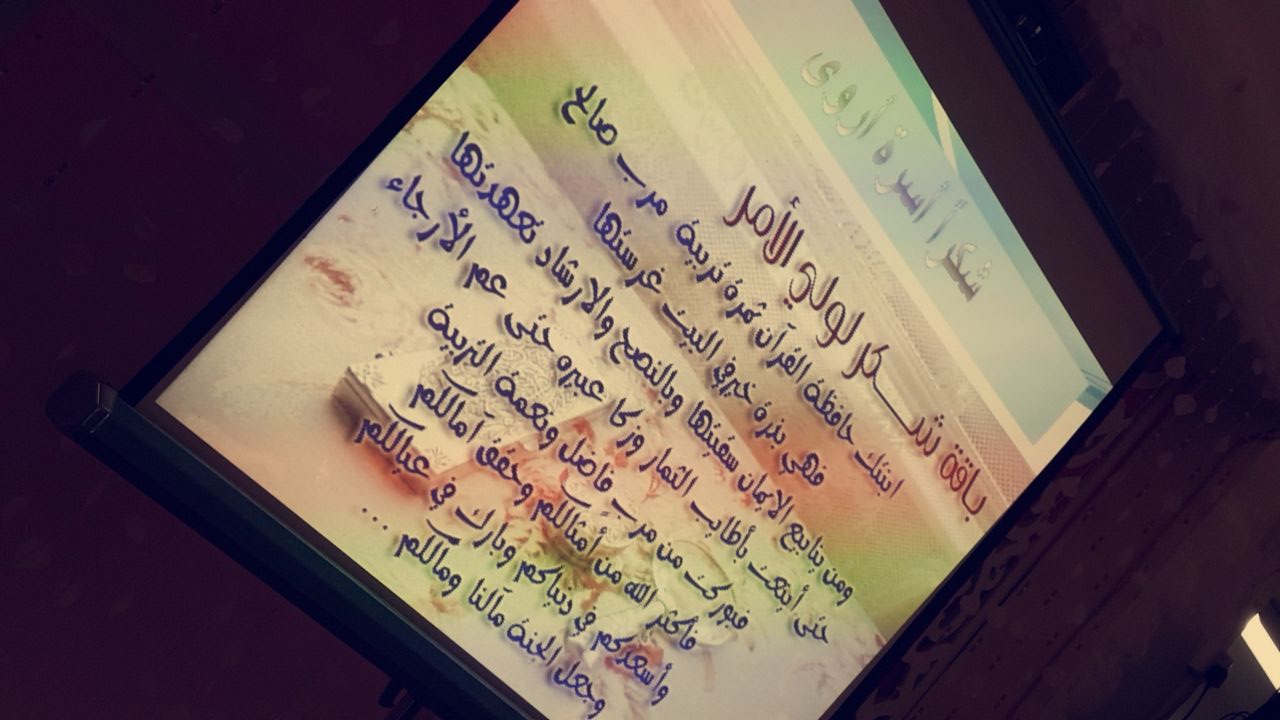 شكرا أسرة أروى
باقة شـــكر لولي الأمر
ابنتك حافظة القرآن ثمرة تربية مرب صالح
فهي بذرة خير في البيت غرستها
ومن ينابيع الإيمان سقيتها وبالنصح والارشاد تعهدتها
حتى أينعت بأطايب الثمار وزكا عبيره حتى عم الأرجاء
فبوركت من مرب فاضل ونعمة التربية
فأكثر الله من أمثالكم وحقق آمالكم
وأسعدكم في دنياكم وبارك في عيالكم
وجعل الجنة مآلنا ومآلكم ...